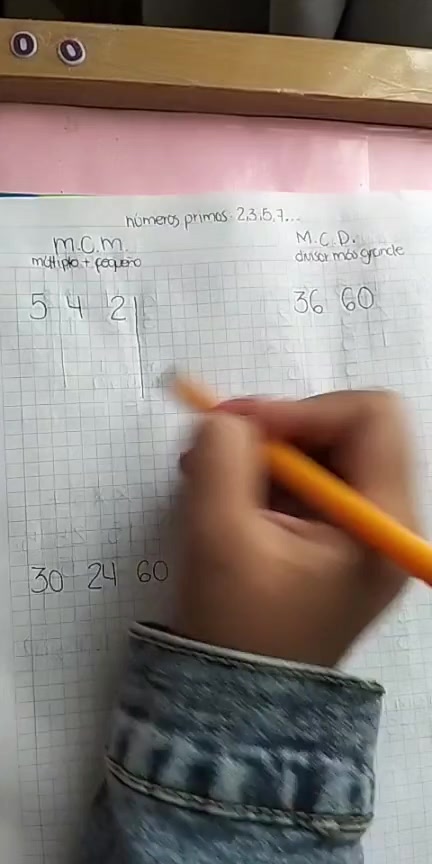 números primos: 2,3,5,7...
m.c.m.
múltiplo + pequeño
5 4 2
30 24 60
M.C.D.
divisor más grande
36 60